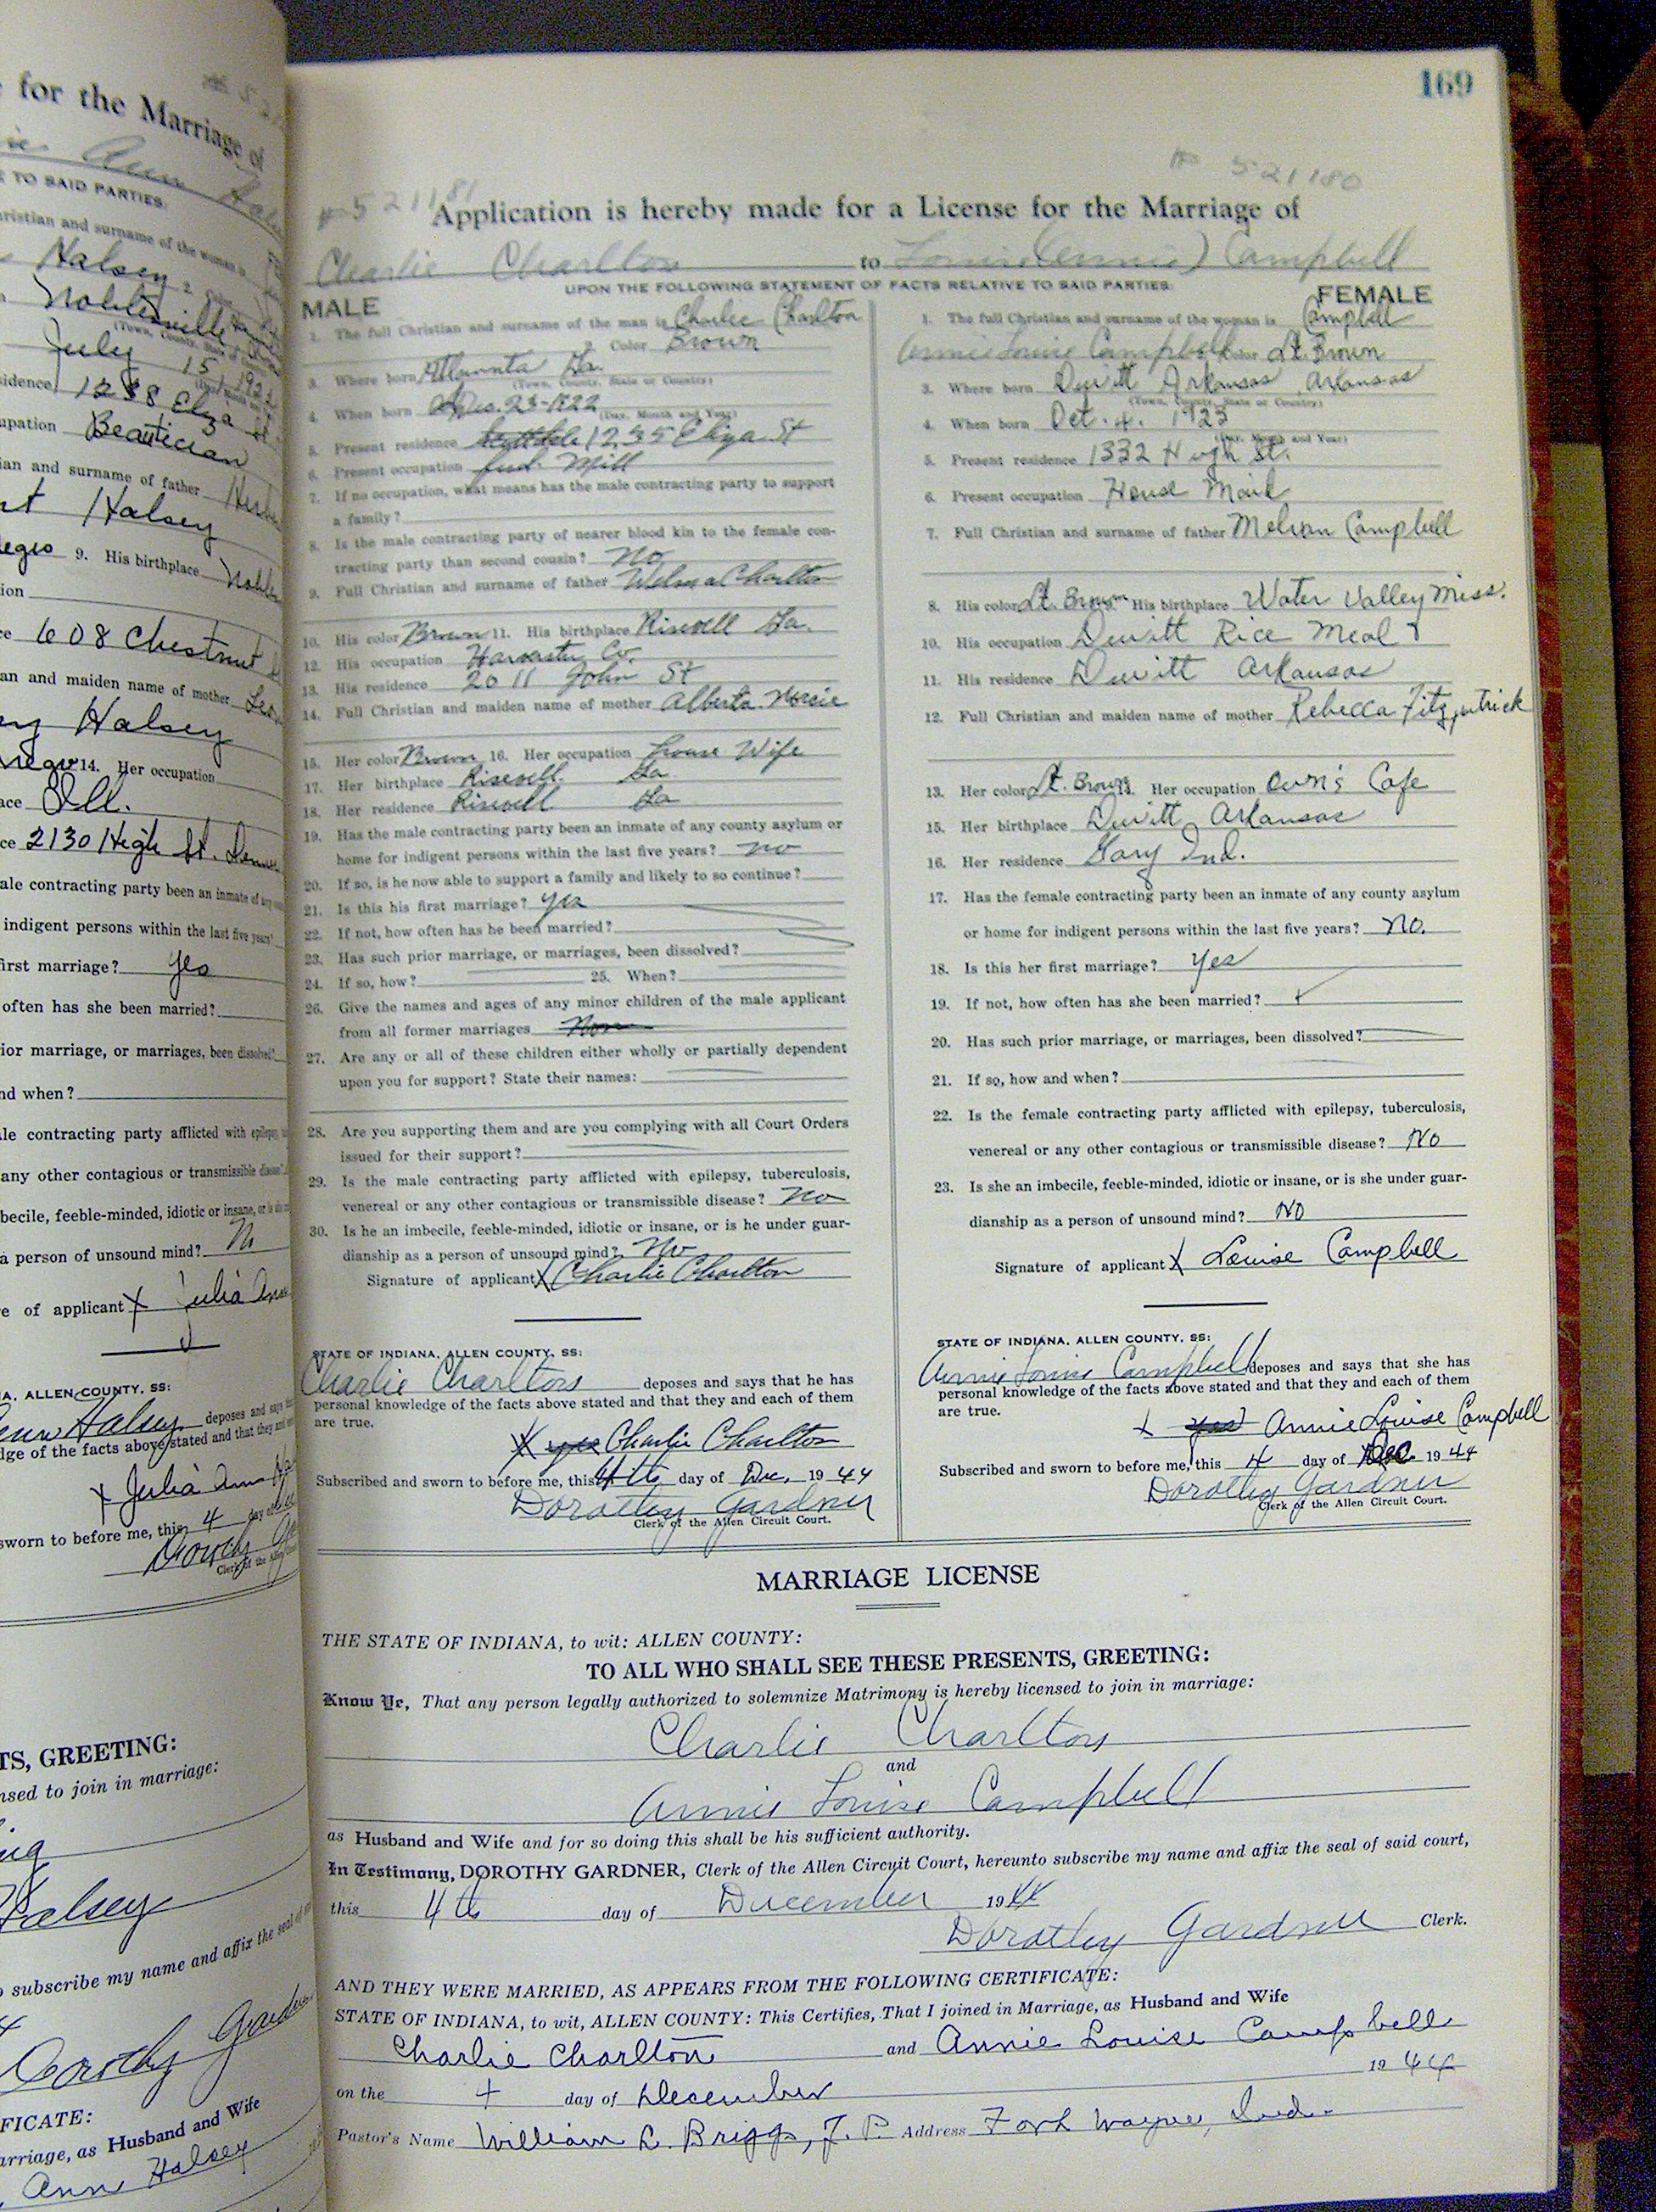 for the Marriage of
TO SAID PARTIES.
Christian and surname of the woman is
Halsey
Noblesville
July 15, 192
residence 1238 Eliza St
occupation Beautician
and surname of father
Halsey
9. His birthplace
608 Chestnut
and maiden name of mother
Halsey
14. Her occupation
Ill.
2130 High St.
male contracting party been an inmate of any
indigent persons within the last five years?
first marriage? yes
often has she been married?
prior marriage, or marriages, been dissolved?
and when?
male contracting party afflicted with epilepsy,
any other contagious or transmissible disease?
imbecile, feeble-minded, idiotic or insane, or is
a person of unsound mind?
of applicant X Julia Ann
ALLEN COUNTY, SS:
Ann Halsey deposes and says
of the facts above stated and that they and
X Julia Ann
sworn to before me, this 4 day of
Dorothy
TS, GREETING:
licensed to join in marriage:
Halsey
subscribe my name and affix the seal of
Dorothy
FICATE:
marriage, as Husband and Wife
Ann Halsey
169
# 521181
# 521180
Application is hereby made for a License for the Marriage of
Charlie Charlton to Louise (Annie) Campbell
UPON THE FOLLOWING STATEMENT OF FACTS RELATIVE TO SAID PARTIES:
MALE
1. The full Christian and surname of the man is Charlie Charlton
2. Color Brown
3. Where born Atlannta Ga.
(Town, County, State or Country)
4. When born Dec. 23-1922
(Day, Month and Year)
5. Present residence 1235 Eliza St
6. Present occupation Ind. Mill
7. If no occupation, what means has the male contracting party to support
a family?
8. Is the male contracting party of nearer blood kin to the female con-
tracting party than second cousin? No
9. Full Christian and surname of father Charlton
10. His color Brown 11. His birthplace Risevell Ga.
12. His occupation Harvester Co.
13. His residence 2011 John St
14. Full Christian and maiden name of mother Alberta
15. Her color Brown 16. Her occupation House Wife
17. Her birthplace Risevell Ga
18. Her residence Risevell Ga
19. Has the male contracting party been an inmate of any county asylum or
home for indigent persons within the last five years? no
20. If so, is he now able to support a family and likely to so continue?
21. Is this his first marriage? yes
22. If not, how often has he been married?
23. Has such prior marriage, or marriages, been dissolved?
24. If so, how? 25. When?
26. Give the names and ages of any minor children of the male applicant
from all former marriages
27. Are any or all of these children either wholly or partially dependent
upon you for support? State their names:
28. Are you supporting them and are you complying with all Court Orders
issued for their support?
29. Is the male contracting party afflicted with epilepsy, tuberculosis,
venereal or any other contagious or transmissible disease? No
30. Is he an imbecile, feeble-minded, idiotic or insane, or is he under guar-
dianship as a person of unsound mind? No
Signature of applicant X Charlie Charlton
STATE OF INDIANA, ALLEN COUNTY, SS:
Charlie Charlton deposes and says that he has
personal knowledge of the facts above stated and that they and each of them
are true.
X yes Charlie Charlton
Subscribed and sworn to before me, this 4th day of Dec. 1944
Dorothy Gardner
Clerk of the Allen Circuit Court.
FEMALE
1. The full Christian and surname of the woman is Campbell
Annie Louise Campbell 2. Color Lt. Brown
3. Where born Dewitt Arkansas Arkansas
(Town, County, State or Country)
4. When born Oct. 4. 1923
(Day, Month and Year)
5. Present residence 1332 Hugh St.
6. Present occupation House Maid
7. Full Christian and surname of father Melvan Campbell
8. His color Lt. Brown 9. His birthplace Water Valley Miss.
10. His occupation Dewitt Rice Meal
11. His residence Dewitt Arkansas
12. Full Christian and maiden name of mother Rebecca Fitzpatrick
13. Her color Lt. Brown 14. Her occupation Own's Cafe
15. Her birthplace Dewitt Arkansas
16. Her residence Gary Ind.
17. Has the female contracting party been an inmate of any county asylum
or home for indigent persons within the last five years? No.
18. Is this her first marriage? Yes
19. If not, how often has she been married?
20. Has such prior marriage, or marriages, been dissolved?
21. If so, how and when?
22. Is the female contracting party afflicted with epilepsy, tuberculosis,
venereal or any other contagious or transmissible disease? No
23. Is she an imbecile, feeble-minded, idiotic or insane, or is she under guar-
dianship as a person of unsound mind? No
Signature of applicant X Louise Campbell
STATE OF INDIANA, ALLEN COUNTY, SS:
Annie Louise Campbell deposes and says that she has
personal knowledge of the facts above stated and that they and each of them
are true.
X yes Annie Louise Campbell
Subscribed and sworn to before me, this 4 day of Dec. 1944
Dorothy Gardner
Clerk of the Allen Circuit Court.
MARRIAGE LICENSE
THE STATE OF INDIANA, to wit: ALLEN COUNTY:
TO ALL WHO SHALL SEE THESE PRESENTS, GREETING:
Know Ye, That any person legally authorized to solemnize Matrimony is hereby licensed to join in marriage:
Charlie Charlton
and
Annie Louise Campbell
as Husband and Wife and for so doing this shall be his sufficient authority.
In Testimony, DOROTHY GARDNER, Clerk of the Allen Circuit Court, hereunto subscribe my name and affix the seal of said court,
this 4th day of December 1944
Dorothy Gardner Clerk.
AND THEY WERE MARRIED, AS APPEARS FROM THE FOLLOWING CERTIFICATE:
STATE OF INDIANA, to wit, ALLEN COUNTY: This Certifies, That I joined in Marriage, as Husband and Wife
Charlie Charlton and Annie Louise Campbell
on the 4 day of December 1944
Pastor's Name William L. Briggs, J. P. Address Fort Wayne, Ind.